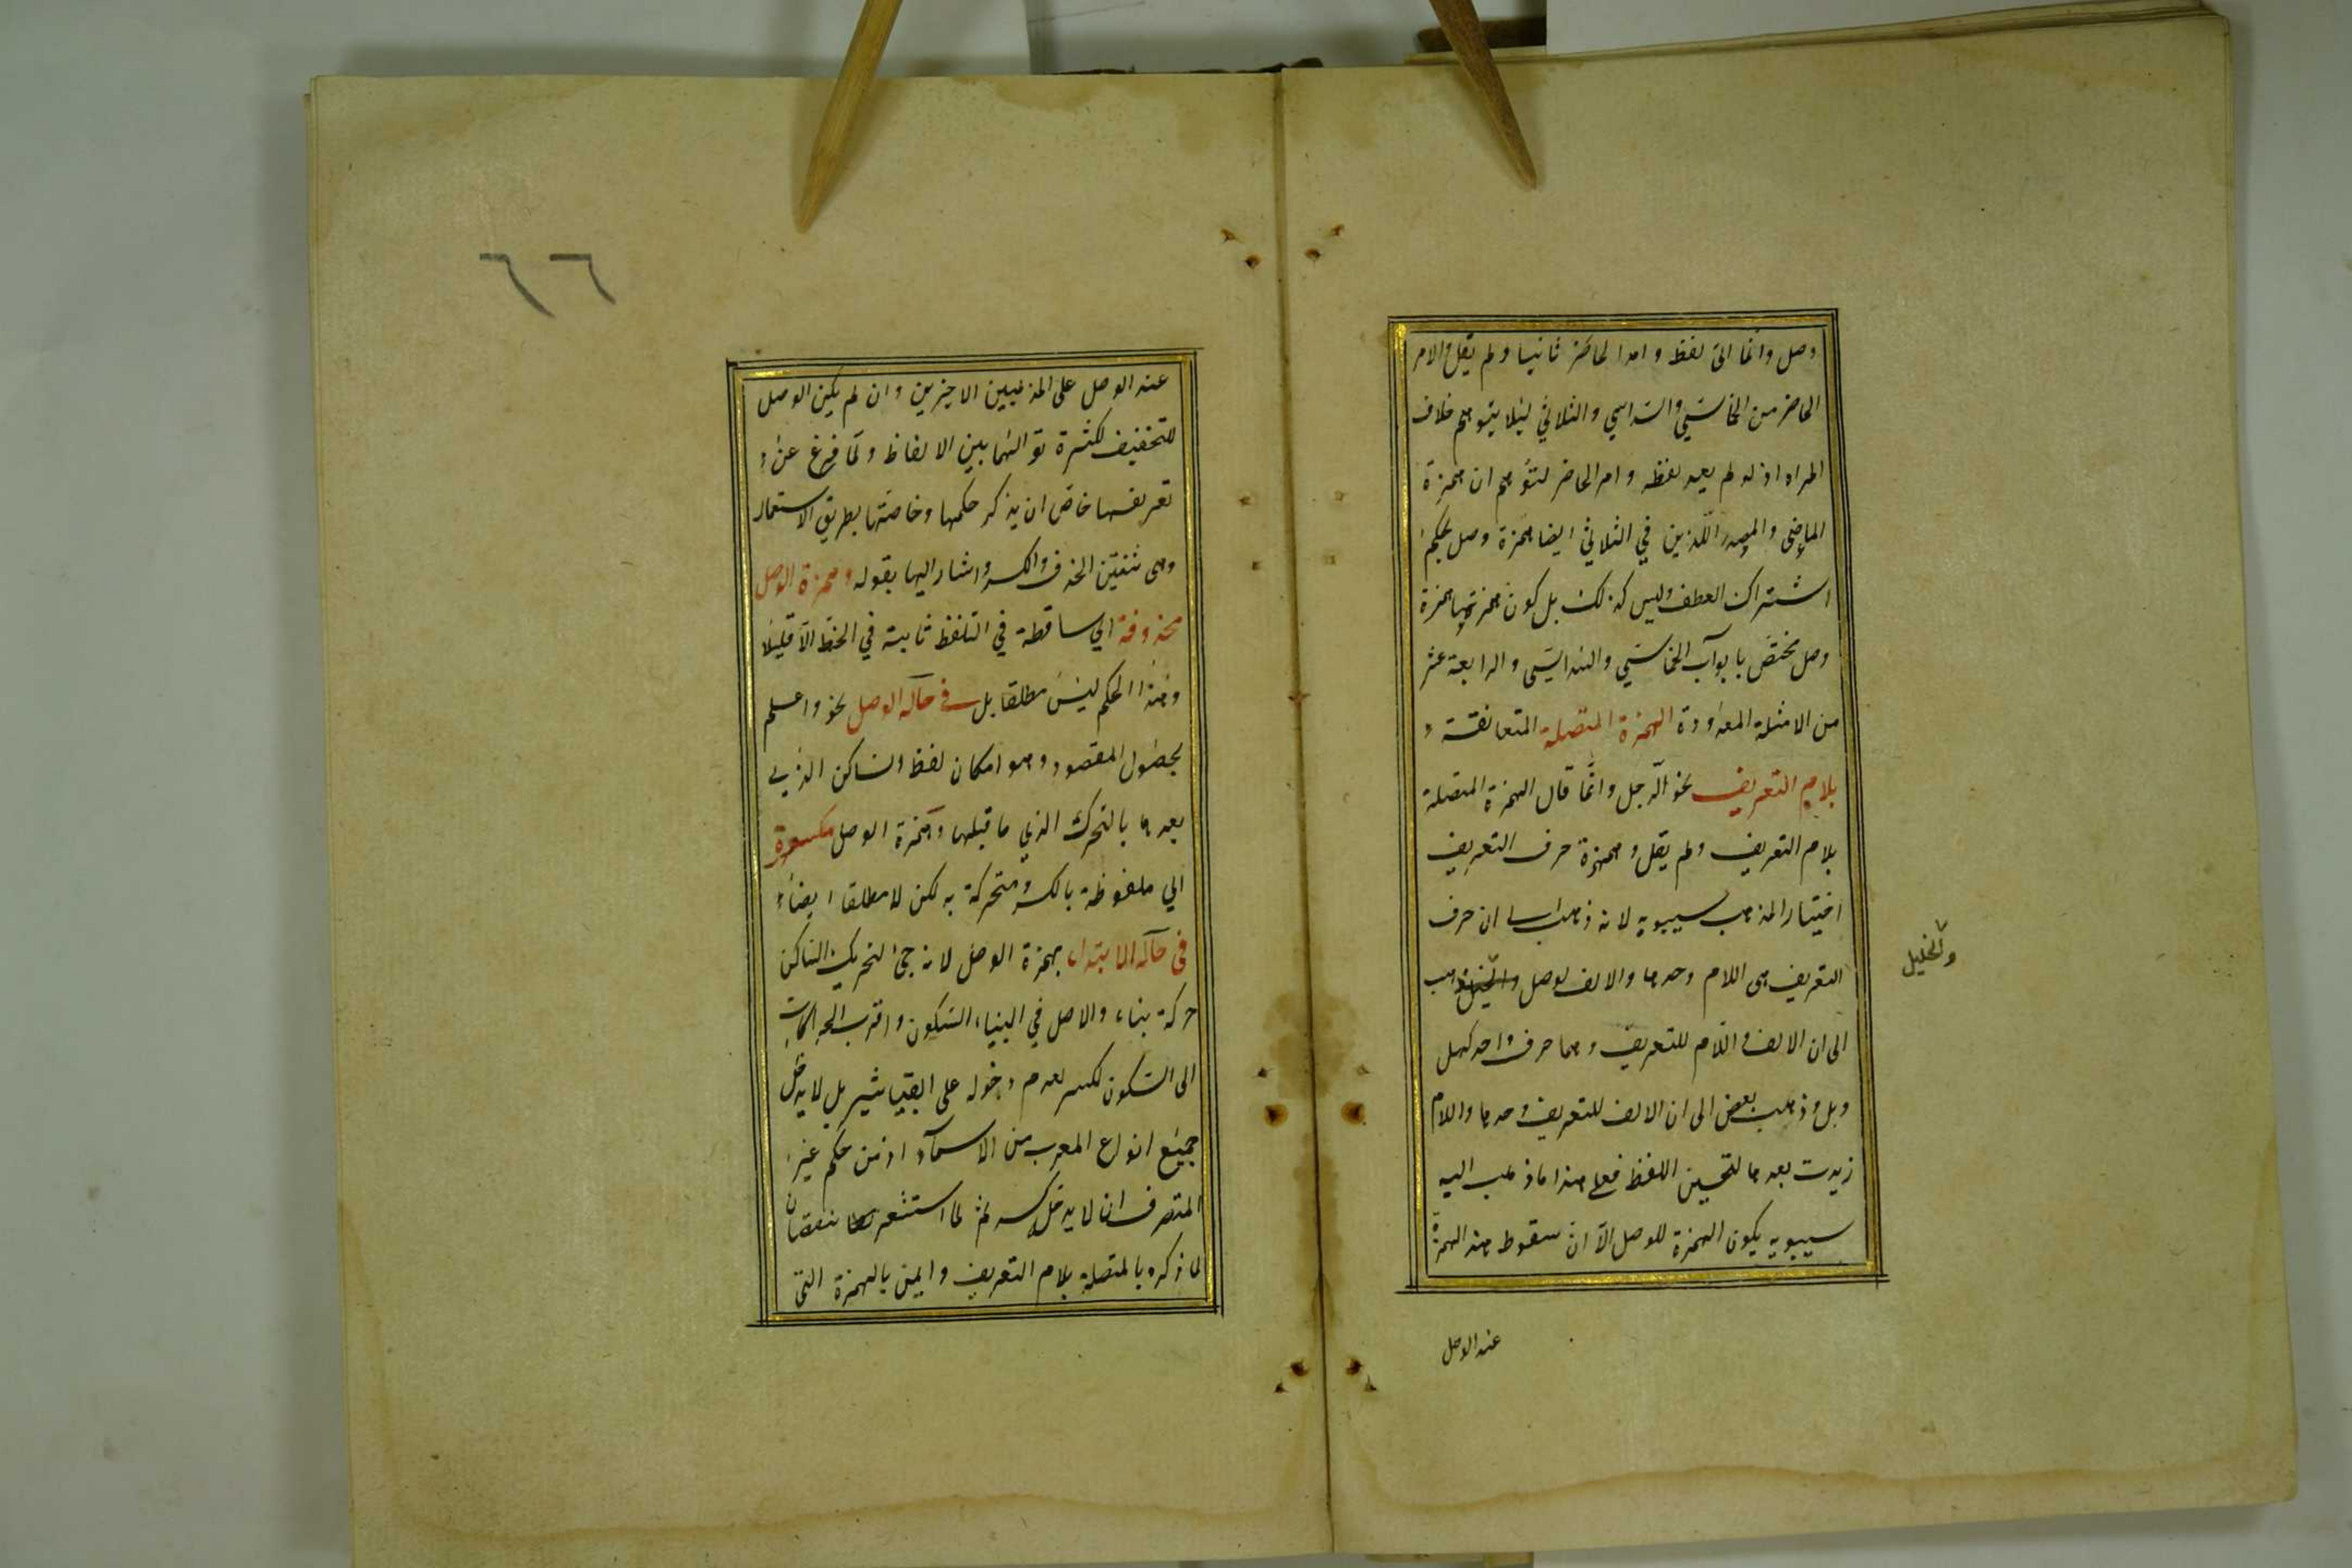 وصل وانما اتى لفظ وامر الحاضر ثانيا ولم يقل والامر
الحاضر من الخماسي والسداسي والثلاثي ليلا يتوهم خلاف
المراد اذ لو لم يعد لفظه وامر الحاضر لتوهم ان همزة
الماضي والمصدر اللذين في الثلاثي ايضا همزة وصل بحكم
اشتراك العطف وليس كذلك بل كون همزتهما همزة
وصل مختص بابواب الخماسي والسداسي والرابعة عشر
من الامثلة المعدودة الهمزة المتصلة المتعانقة
بلام التعريف نحو الرجل وانما قال الهمزة المتصلة
بلام التعريف ولم يقل وهمزة حرف التعريف
اختيار المذهب سيبويه لانه ذهب الى ان حرف
التعريف هى اللام وحدها والالف لوصل والخليل ذهب
والخليل
الى ان الالف واللام للتعريف وهما حرف واحد كهل
وبل وذهب بعض الى ان الالف للتعريف وحدها واللام
زيدت بعدها لتحسين اللفظ فعلى هذا ماذهب اليه
سيبويه يكون الهمزة للوصل الا ان سقوط هذه الهمزة
عند الوصل
٦٦
عند الوصل على المذهبين الاخيرين وان لم يكن الوصل
للتخفيف لكثرة توالئها بين الالفاظ ولما فرغ عن
تعريفها خاض ان يذكر حكمها وخاصتها بطريق الاستعمال
وهى ثنتين الحذف والكسر واشار اليها بقوله وهمزة الوصل
محذوفة اي ساقطة في التلفظ ثابتة في الخط الا قليلا
وهذا الحكم ليس مطلقا بل في حالة الوصل نحو واعلم
لحصول المقصود وهو امكان لفظ والساكن الذي
بعدها بالتحرك الذي ماقبلها وهمزة الوصل مكسورة
اي ملفوظة بالكسر ومتحركة به لكن لا مطلقا ايضا
في حالة الابتداء بهمزة الوصل لانه جئ لتحريك الساكن
حركة بناء والاصل في البناء السكون واقرب الحركات
الى السكون لكسر لعدم دخوله على القبيلتين بل لا يدخل
جميع انواع المعرب من الاسماء اذ من حكم غير
المتصرف ان لا يدخل كسر ثم لما استشعر نقصان
لما ذكره بالمتصلة بلام التعريف وايمن بالهمزة التي